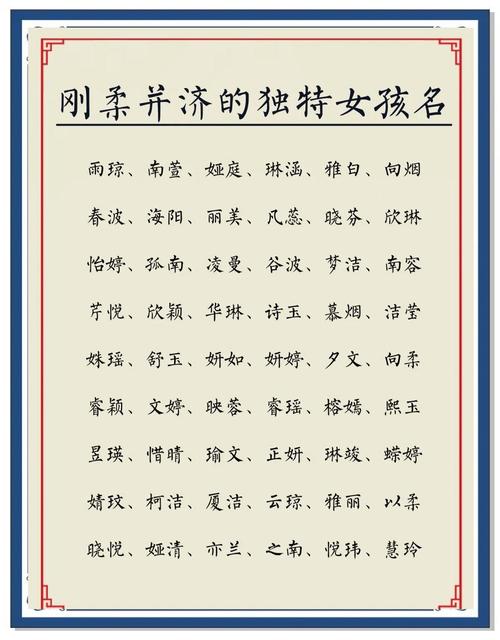 刚柔并济的独特女孩名
雨琼、南萱、娅庭、琳涵、雅白、向烟
春波、海阳、丽美、凡蕊、晓芬、欣琳
怡婷、孤南、凌曼、谷波、梦洁、南容
芹悦、欣颖、华琳、诗玉、慕烟、洁莹
姝瑶、舒玉、妍如、妍婷、夕文、向柔
睿颖、文婷、映蓉、睿瑶、榕嫣、熙玉
昱瑛、惜晴、瑜文、正妍、琳竣、蝾婷
婧玟、柯洁、厦洁、云琼、雅丽、以柔
晓悦、娅清、亦兰、之南、悦玮、慧玲